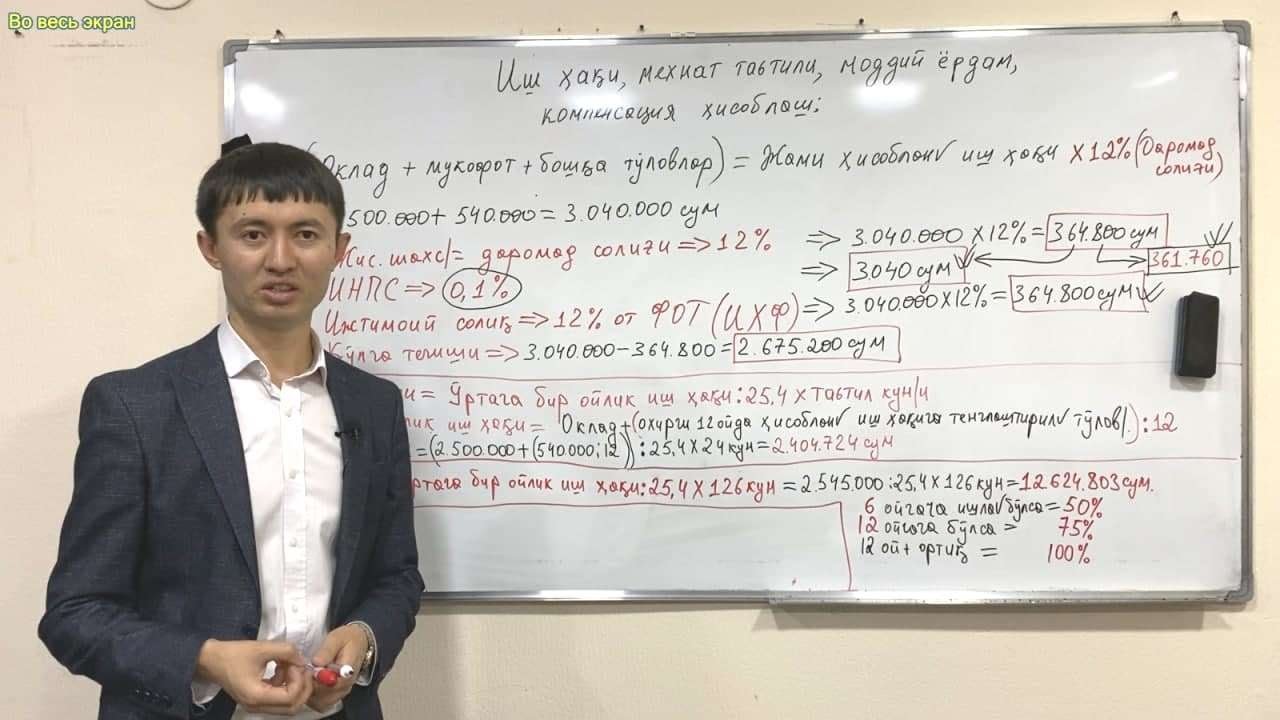 Во весь экран
Иш ҳақи, меҳнат таътили, моддий ёрдам,
компенсация ҳисоблаш:
Оклад + мукофот + бошқа тўловлар) = Жами ҳисоблан иш ҳақи X 12% (Даромад
солиғи)
500.000 + 540.000 = 3.040.000 сум
Жис. шахс/= даромад солиғи => 12% => 3.040.000 X 12% = 364.800 сум
=> 3040 сум 361.760
ИНПС => 0,1%
Ижтимоий солиқ => 12% от ФОТ (ИХФ) => 3.040.000 X 12% = 364.800 сум
Қўлга тегиши => 3.040.000 - 364.800 = 2.675.200 сум
= Ўртача бир ойлик иш ҳақи : 25,4 X таътил кун/и
лик иш ҳақи = Оклад + (охирги 12 ойда ҳисоблан иш ҳақига тенглаштирил тўлов/.) : 12
= (2.500.000 + (540.000 : 12)) : 25,4 X 24 кун = 2.404.724 сум
ртача бир ойлик иш ҳақи : 25,4 X 126 кун = 2.545.000 : 25,4 X 126 кун = 12.624.803 сум.
6 ойгача ишла бўлса = 50%
12 ойгача бўлса = 75%
12 ой + ортиқ = 100%